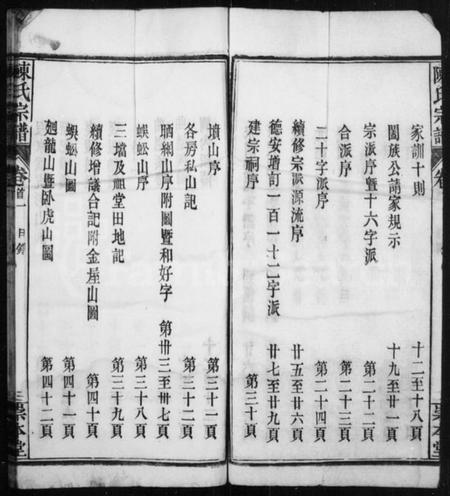 陳氏宗譜
卷
家訓十則 十二至十八頁
閤族公請家規示 十九至廿一頁
宗派序暨十六字派 第二十二頁
合派序 第二十三頁
二十字派序 第二十四頁
續修宗派源流序 廿五至廿六頁
德安增訂一百一十二字派 廿七至廿九頁
建宗祠序 第三十頁
墳山序 第三十一頁
各房私山記 第三十二頁
序附圖暨和好字 第卅三至卅七頁
蜈蚣山序 第三十八頁
三塆及祖堂田地記 第三十九頁
續修增議合記附金屋山圖 第四十頁
蜈蚣山圖 第四十一頁
迴龍山暨卧虎山圖 第四十二頁
陳氏宗譜
卷首一 目錄
本堂